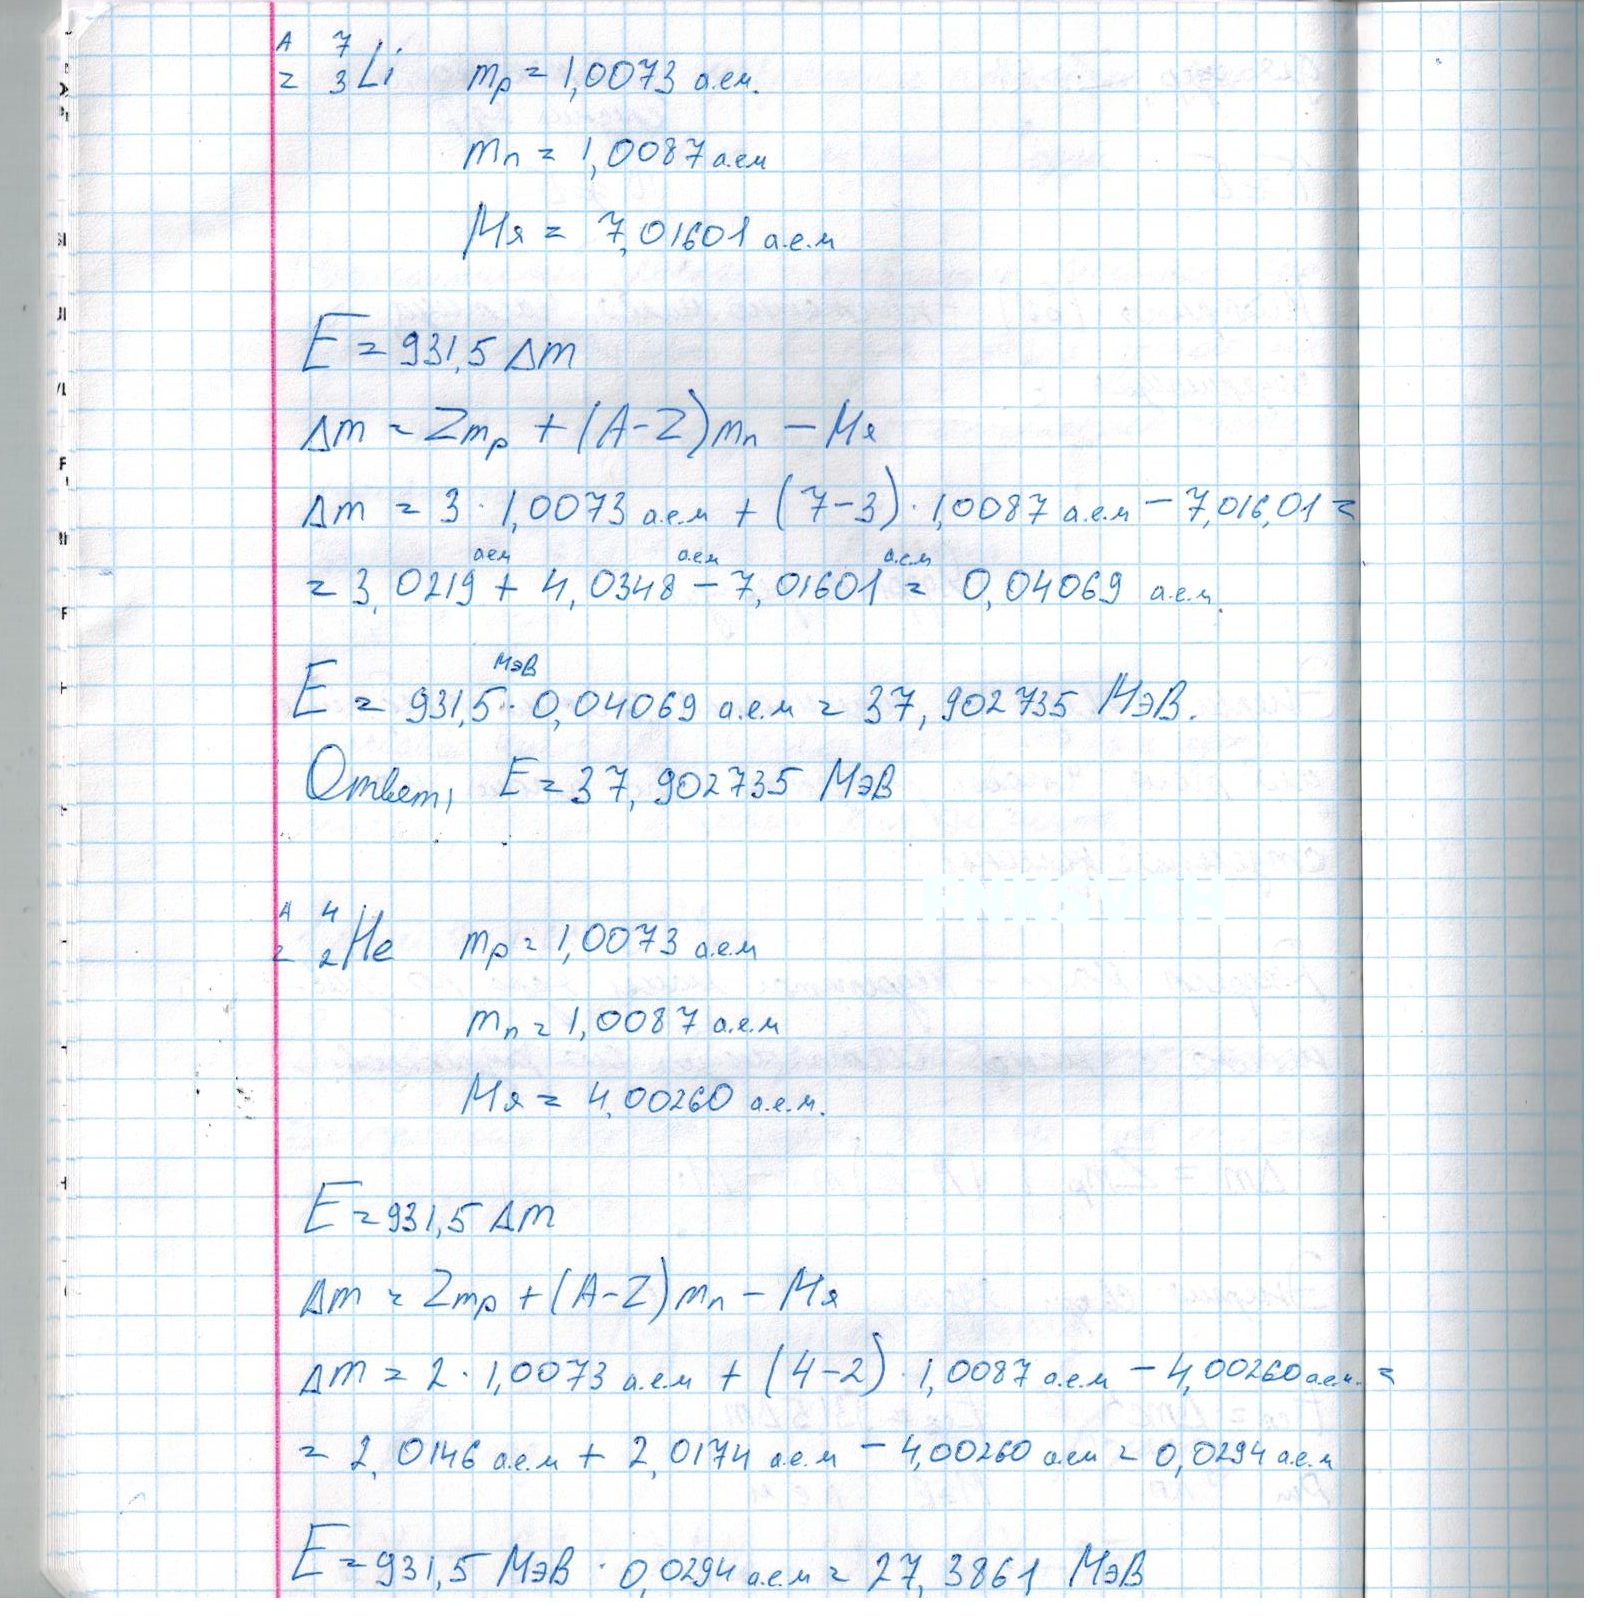 A 7
Z 3 Li mp = 1,0073 а.е.м.
mn = 1,0087 а.е.м
Mя = 7,01601 а.е.м
E = 931,5 Δm
Δm = Zmp + (A-Z)mn - Mя
Δm = 3 · 1,0073 а.е.м + (7-3) · 1,0087 а.е.м - 7,016,01 =
= 3,0219 а.е.м + 4,0348 а.е.м - 7,01601 а.е.м = 0,04069 а.е.м.
E = 931,5 МэВ · 0,04069 а.е.м = 37,902735 МэВ.
Ответ, E = 37,902735 МэВ
PNKSYCH
A 4
Z 2 He mp = 1,0073 а.е.м
mn = 1,0087 а.е.м
Mя = 4,00260 а.е.м.
E = 931,5 Δm
Δm = Zmp + (A-Z)mn - Mя
Δm = 2 · 1,0073 а.е.м + (4-2) · 1,0087 а.е.м - 4,00260 а.е.м. =
= 2,0146 а.е.м + 2,0174 а.е.м - 4,00260 а.е.м = 0,0294 а.е.м
E = 931,5 МэВ · 0,0294 а.е.м = 27,3861 МэВ